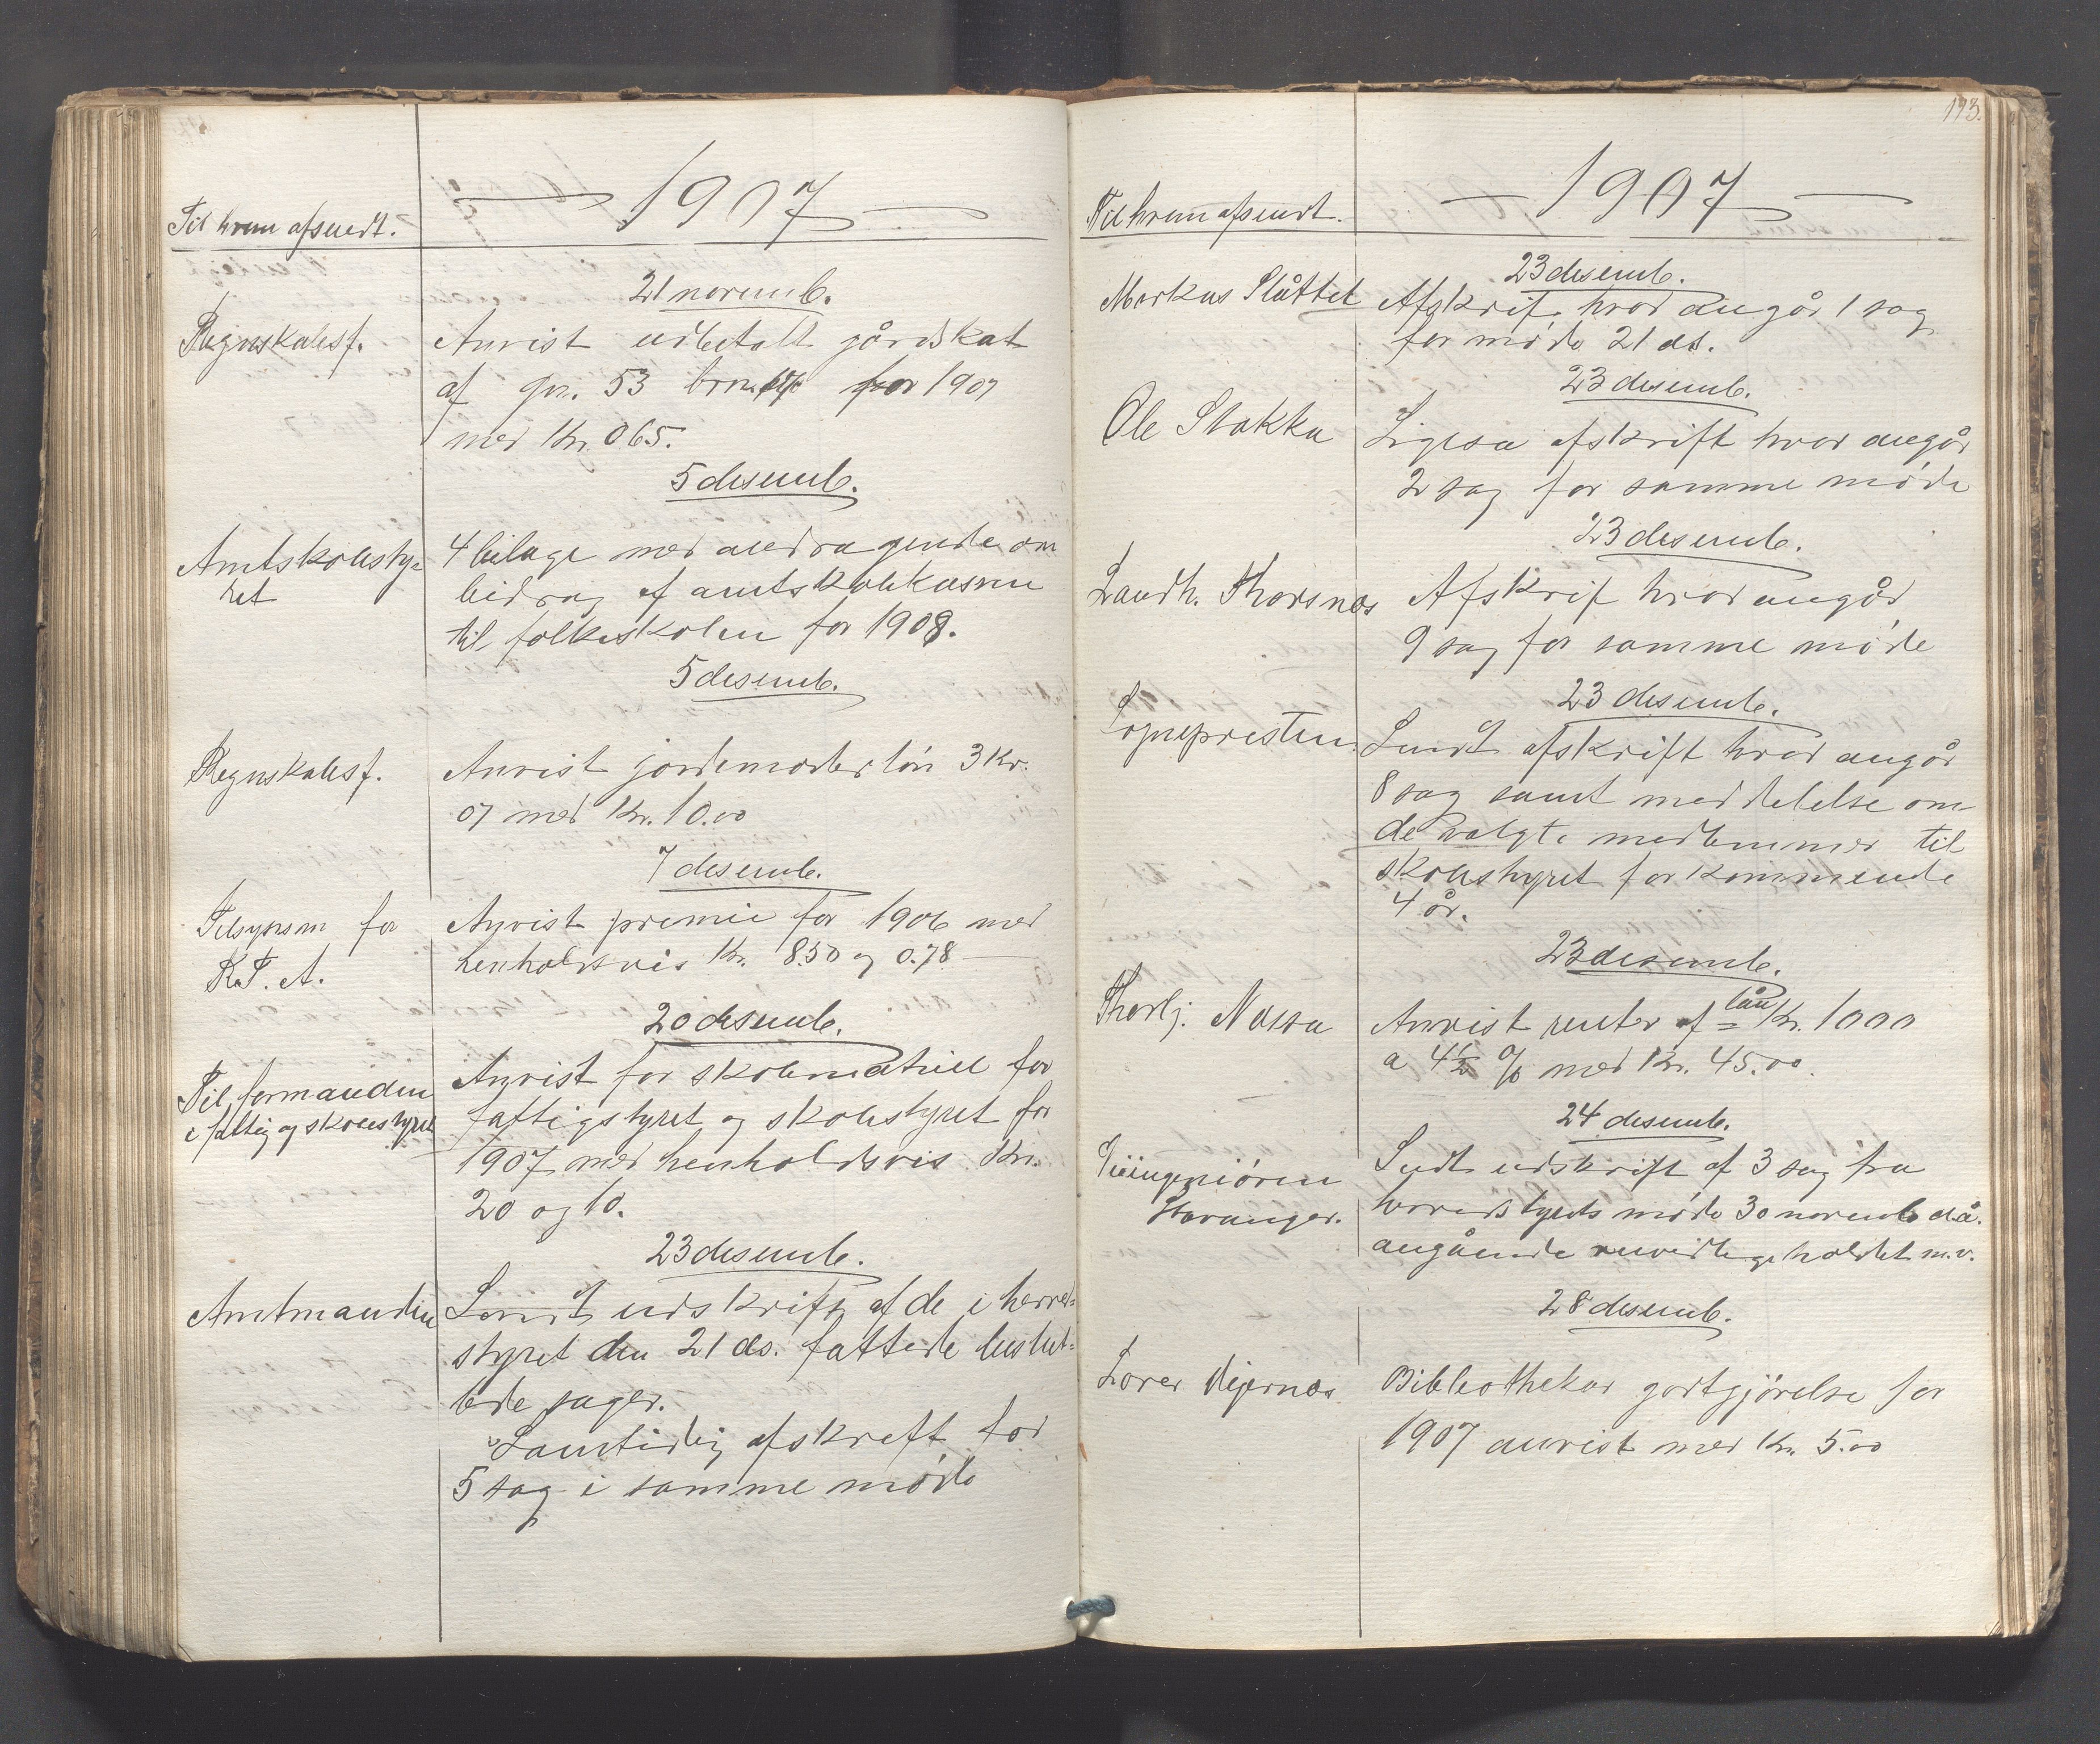 1907
Til hvem afsendt.
21 novemb.
Regnskabsf. Anvist udbetalt gårdskat
af gn. 53 brn. for 1907
med Kr. 065.
5 desemb.
Amtskolesty= 4 bilage med andragende om
ret bidrag af amtskolekassen
til folkeskolen for 1908.
5 desemb.
Regnskabsf. Anvist jordemoderløn 3 Kv.
07 med Kr. 10.00
7 desemb.
Tilsynsm for Anvist premie for 1906 med
R.T.A. henholdsvis Kr. 8.50 og 0.78
20 desemb.
Til formanden Anvist for skolematriell for
i fattig og skolestyret fattigstyret og skolestyret for
1907 med henholdsvis Kr.
20 og 10.
23 desemb.
Amtmanden Sendt udskrift af de i herred=
styret den 21 ds. fattede beslut=
tede sager.
Samtidig afskreft for
5 sag i samme møde
173.
1907
Til hvem afsendt.
23 desemb.
Markus Slåttet Afskrif hvad angår 1 sag
for møde 21 ds.
23 desemb.
Ole Stakka Ligesa afskrift hvad angår
2 sag for samme møde
23 desemb.
Landh. Thorsnæs Afskrif hvad angår
9 sag for samme møde
23 desemb.
Sognepresten Sendt afskrift hvad angår
8 sag samt meddelelse om
de valgte medlemmer til
skolestyret for kommende
4 år.
23 desemb.
Thorbj. Nessa Anvist renter af lån Kr. 1000
a 4½ % med Kr. 45.00.
24 desemb.
Veiingeniøren Sendt udskrift af 3 sag fra
Stavanger. herredstyrets møde 30 novemb d.å.
angående veivedligeholdet m.v.
28 desemb.
Lærer Bibliothekar godtgjørelse for
1907 anvist med Kr. 5.00